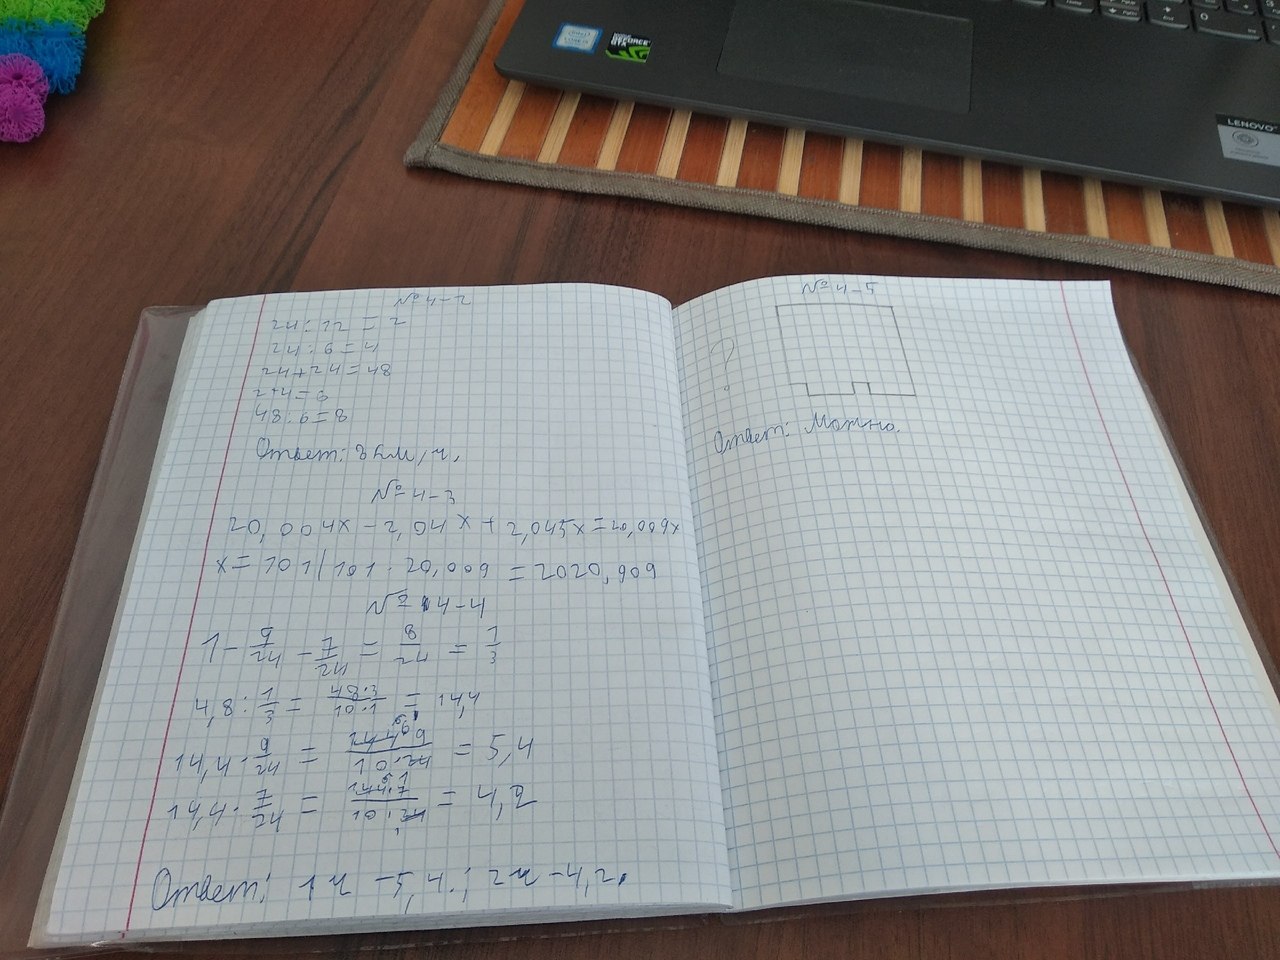 GEFORCE
GTX
LENOVO
№ 4-2
24 : 12 = 2
24 : 6 = 4
24 + 24 = 48
2+4=6
48 : 6 = 8
Ответ: 8 км/ч.
№ 4-3
20,004x - 2,04x + 2,045x = 20,009x
x = 101 | 101 · 20,009 = 2020,909
№ 4-4
1 - 9/24 - 7/24 = 8/24 = 1/3
4,8 : 1/3 = 48·3/10·1 = 14,4
14,4 · 9/24 = 144·9/10·24 = 5,4
14,4 · 7/24 = 144·7/10·24 = 4,2
Ответ: 1ч - 5,4.; 2ч - 4,2.
№ 4-5
?
Ответ: Можно.